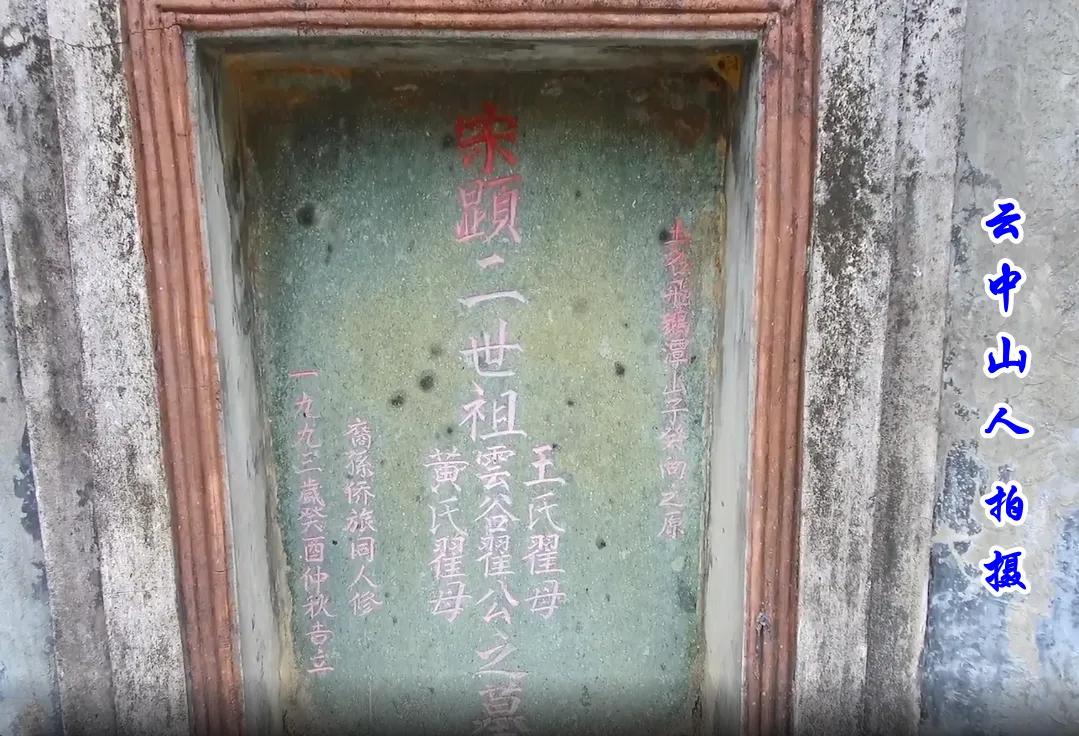 土名飛鵝潭山子癸向之原
王氏翟母
宋顯二世祖雲谷翟公之墓
黃氏翟母
裔孫侨旅同人修
一九九三歲癸酉仲秋吉立
云中山人拍摄